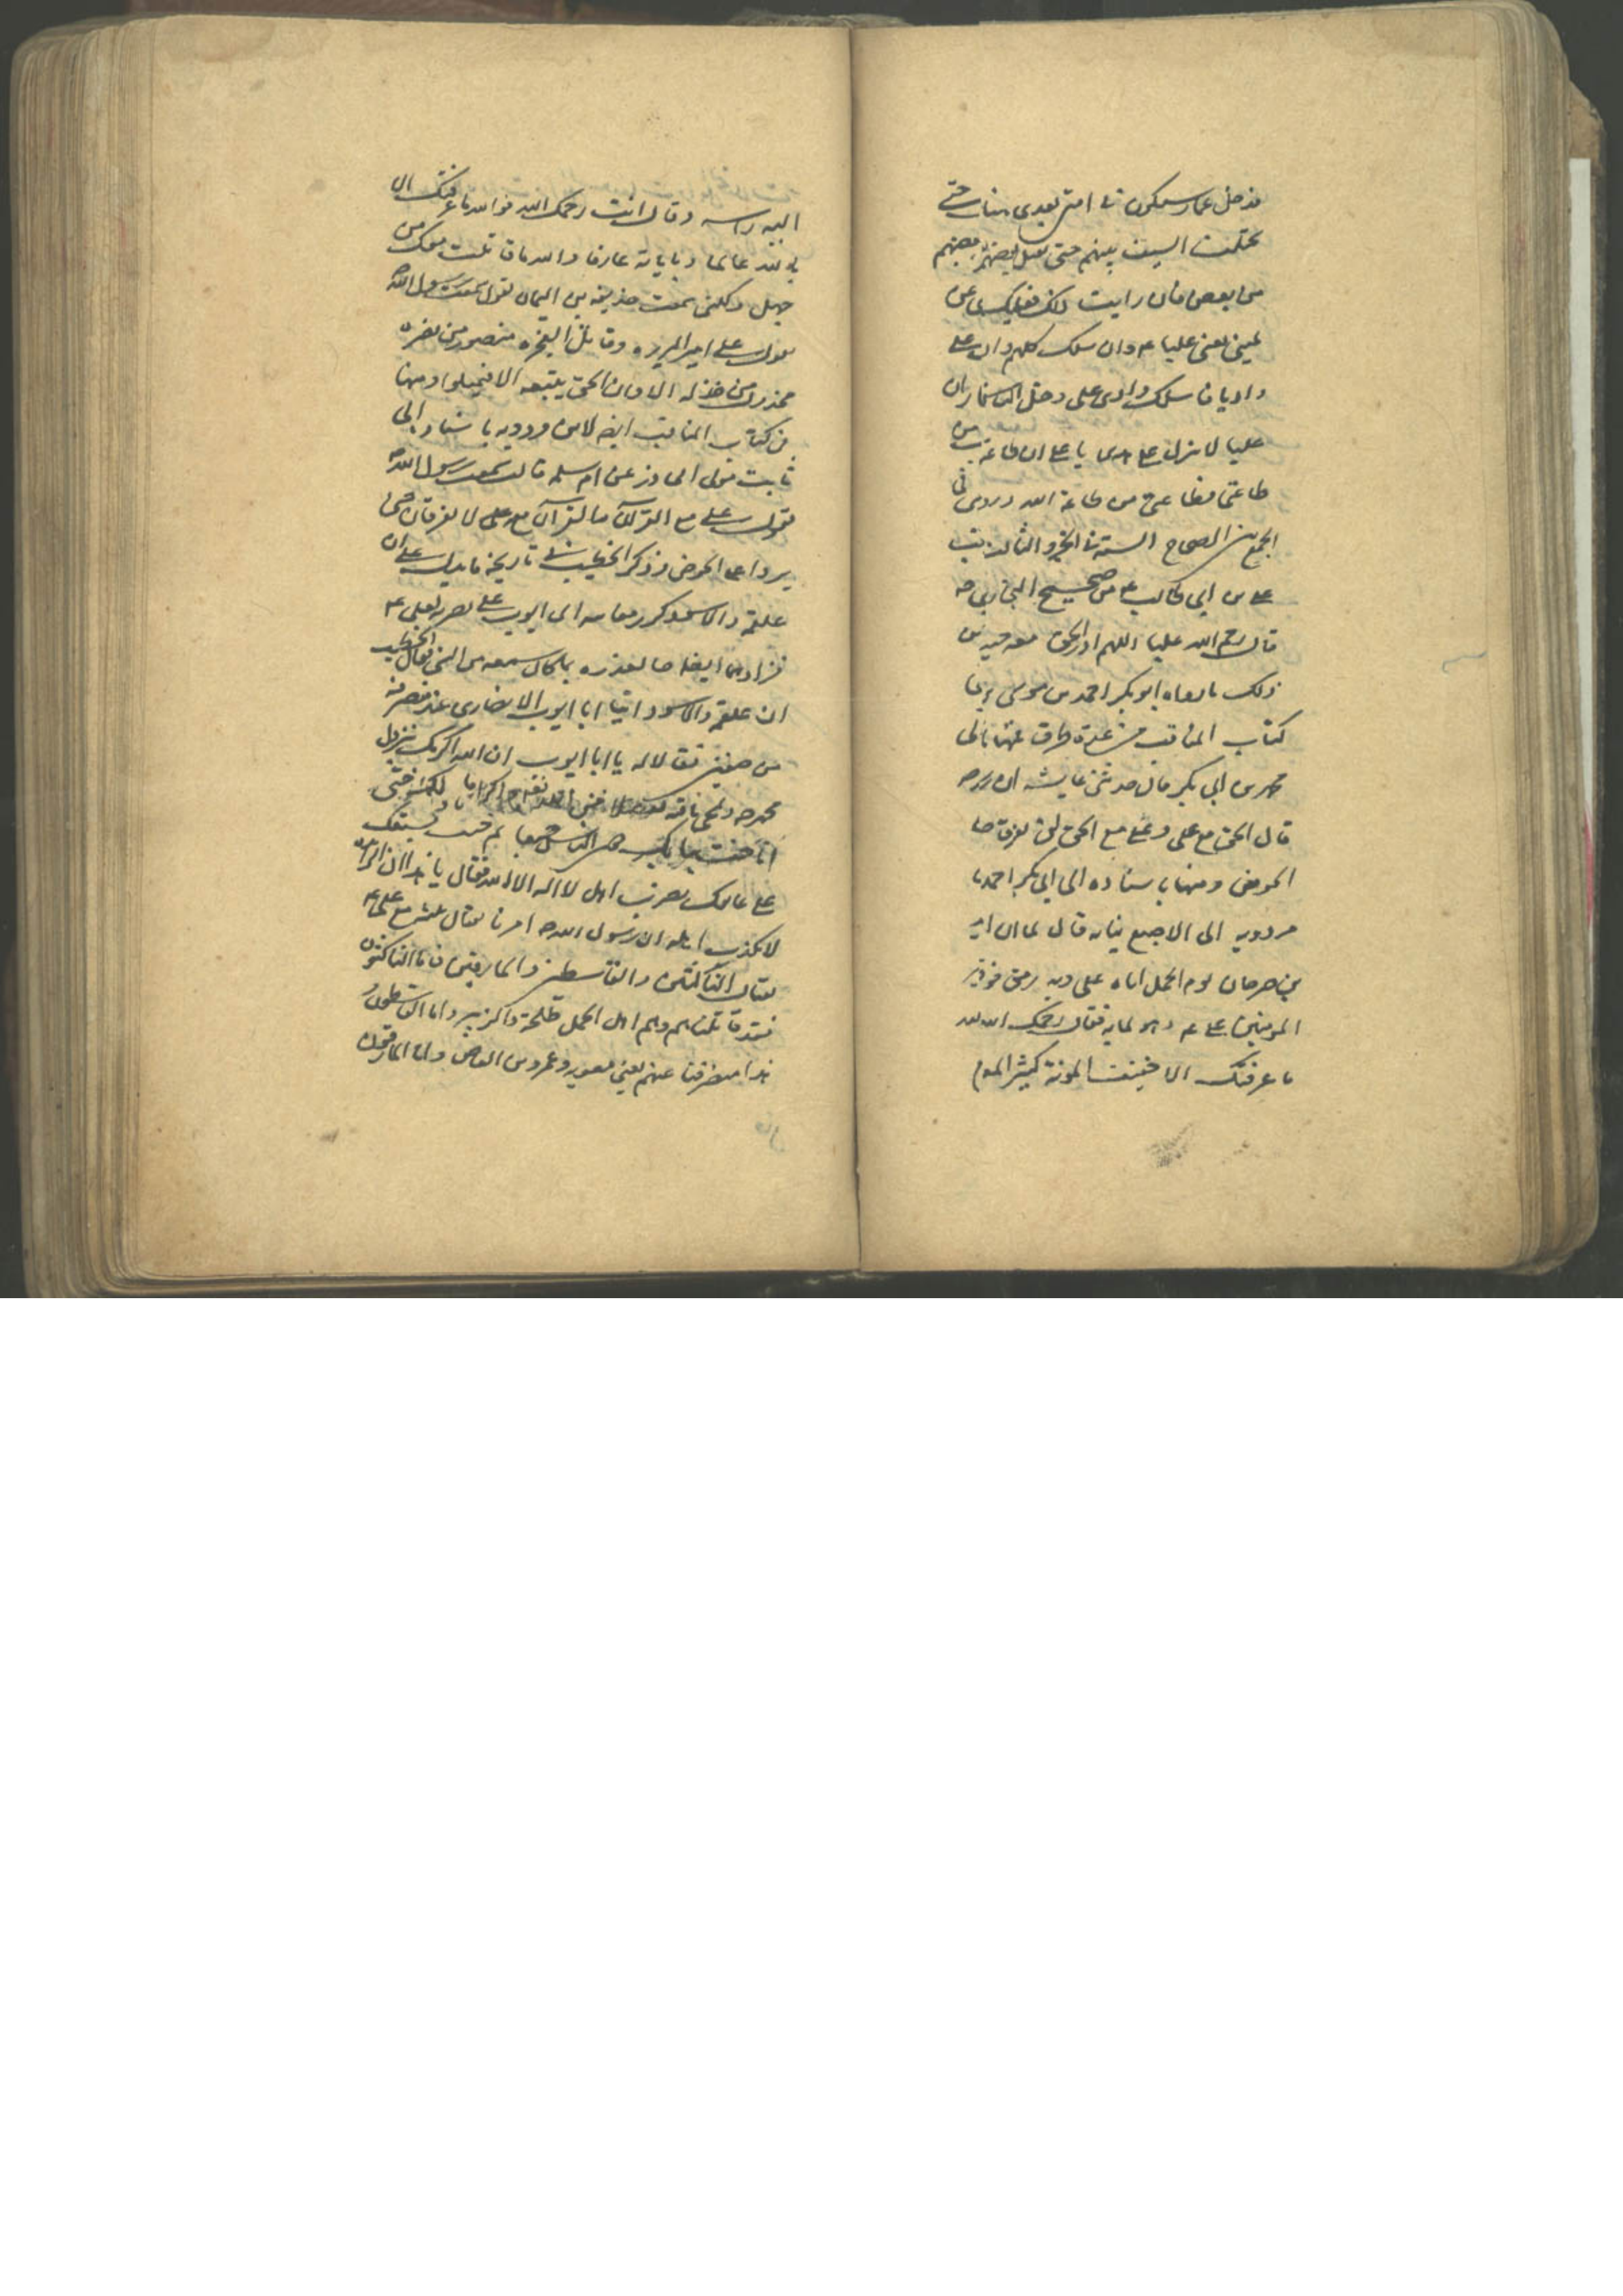 فدخل عمار سيكون في امتي بعدي هنات حتى
يختلف السيف بينهم حتى يقتل بعضهم بعضهم
من بعض فان رايت ذلك فعليك بهذا عن
يميني يعني عليا ع وان سلك كلهم وان على
واديا فاسلك وادي على وخل الناس يا عمار ان
عليا لا يزل على هدى يا على ان طاعته من
طاعتي وطاعتي من طاعة الله وروى في
الجمع بين الصحاح الستة في الجزو الثالث
على بن ابي طالب ع من صحيح البخاري
قال رحم الله عليا اللهم ادر الحق معه حيث
ذلك ما رواه ابو بكر احمد بن موسى
كتاب المناقب من عدة طرق فمنها
محمد بن ابي بكر قال حدثتني عايشه ان
قال الحق مع على وعلي مع الحق لن يفترقا
الحوض ومنها باسناده الى ابي بكر احمد
مردويه الى الاصبغ بن نباته قال لما ان
بن صوحان يوم الجمل اتاه على وبه رمق
المومنين على ع وهو لما به فقال رحمك الله
ما عرفتك الا خفيف المونة كثير المعونة
اليه راسه وقال انت رحمك الله فوالله ما عرفتك الا
بالله عالما وباياته عارفا والله ما قاتلت معك من
جهل ولكني سمعت حذيفة بن اليمان يقول سمعت رسول الله
يقول على امير البررة وقاتل الفجره منصور من نصره
مخذول من خذله الا وان الحق يتبعه الا فميلوا ومنها
من كتاب المناقب ايضا لابن مردويه باسناد الى
ثابت مولى ابي ذر عن ام سلمه قالت سمعت رسول الله
يقول على مع القرآن والقرآن مع على لا يفترقان حتى
يردا على الحوض وذكر الخطيب في تاريخه ما يدل على ان
علقمه والاسود كررا معاتبه ابي ايوب على نصرته لعلي ع
فزادهما ايضا بما سمعه من النبي فقال الخطيب
ان علقمه والاسود اتيا ابا ايوب الانصاري عند منصرفه
من صفين فقالا له يا ابا ايوب ان الله اكرمك بنزول
محمد وبمجي ناقته تفضلا من الله تعالى واكراما لك حتى
اناخت ببابك دون الناس جميعا ثم جئت بسيفك
على عاتقك تضرب اهل لا اله الا الله فقال يا هذا ان الرائد
لا يكذب اهله ان رسول الله امرنا بقتال ثلثه مع على ع
بقتال الناكثين والقاسطين والمارقين فاما الناكثون
فقد قاتلناهم وهم اهل الجمل طلحة والزبير واما القاسطون
فهذا منصرفنا عنهم يعني معويه وعمرو بن العاص واما المارقون